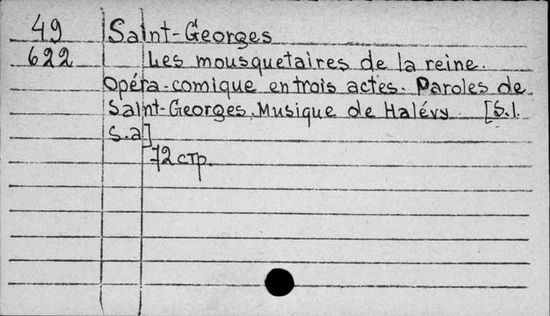 49 Saint-Georges
622 Les mousquetaires de la reine.
Opéra-comique en trois actes. Paroles de
Saint-Georges. Musique de Halévy. [S.l.
s.a]
72 стр.